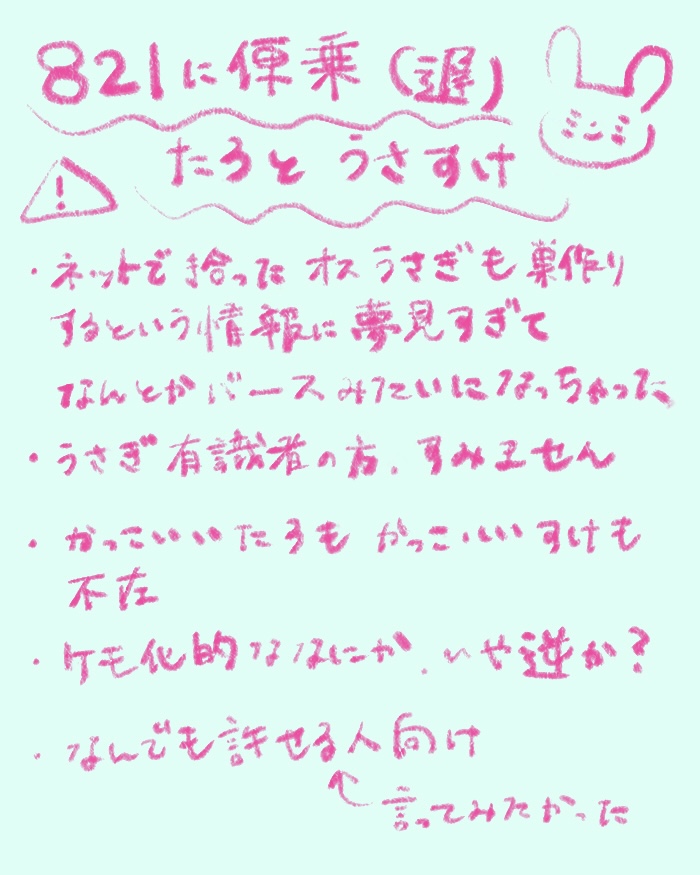 821に便乗(遅)
たろとうさすけ
!
・ネットで拾ったオスうさぎも巣作り
するという情報に夢見すぎて
なんとかバースみたいになっちゃった
・うさぎ有識者の方、すみません
・かっこいいたろもかっこいいすけも
不在
・ケモ化的ななにか、いや逆か?
・なんでも許せる人向け
言ってみたかった